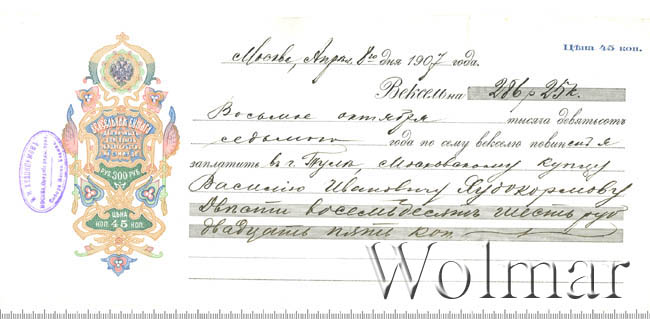 Цѣна 45 коп.
Москва, Апрѣля 8го дня 1907 года.
Вексель на 286 р 25 к.
Восьмого октября тысяча девятьсотъ
седьмого года по сему векселю повиненъ я
заплатить въ г. Тулѣ, Московскому купцу
Василію Ивановичу Худокормову
Двѣсти восемьдесятъ шесть руб
двадцать пять коп.
РУБ 300 РУБ
ЦѢНА
КОП 45 КОП.
Wolmar